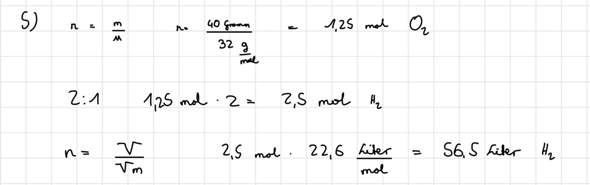 5) n = m/M n = 40 Gramm / 32 g/mol = 1,25 mol O₂
2:1 1,25 mol · 2 = 2,5 mol H₂
n = V/Vm 2,5 mol · 22,6 Liter/mol = 56,5 Liter H₂